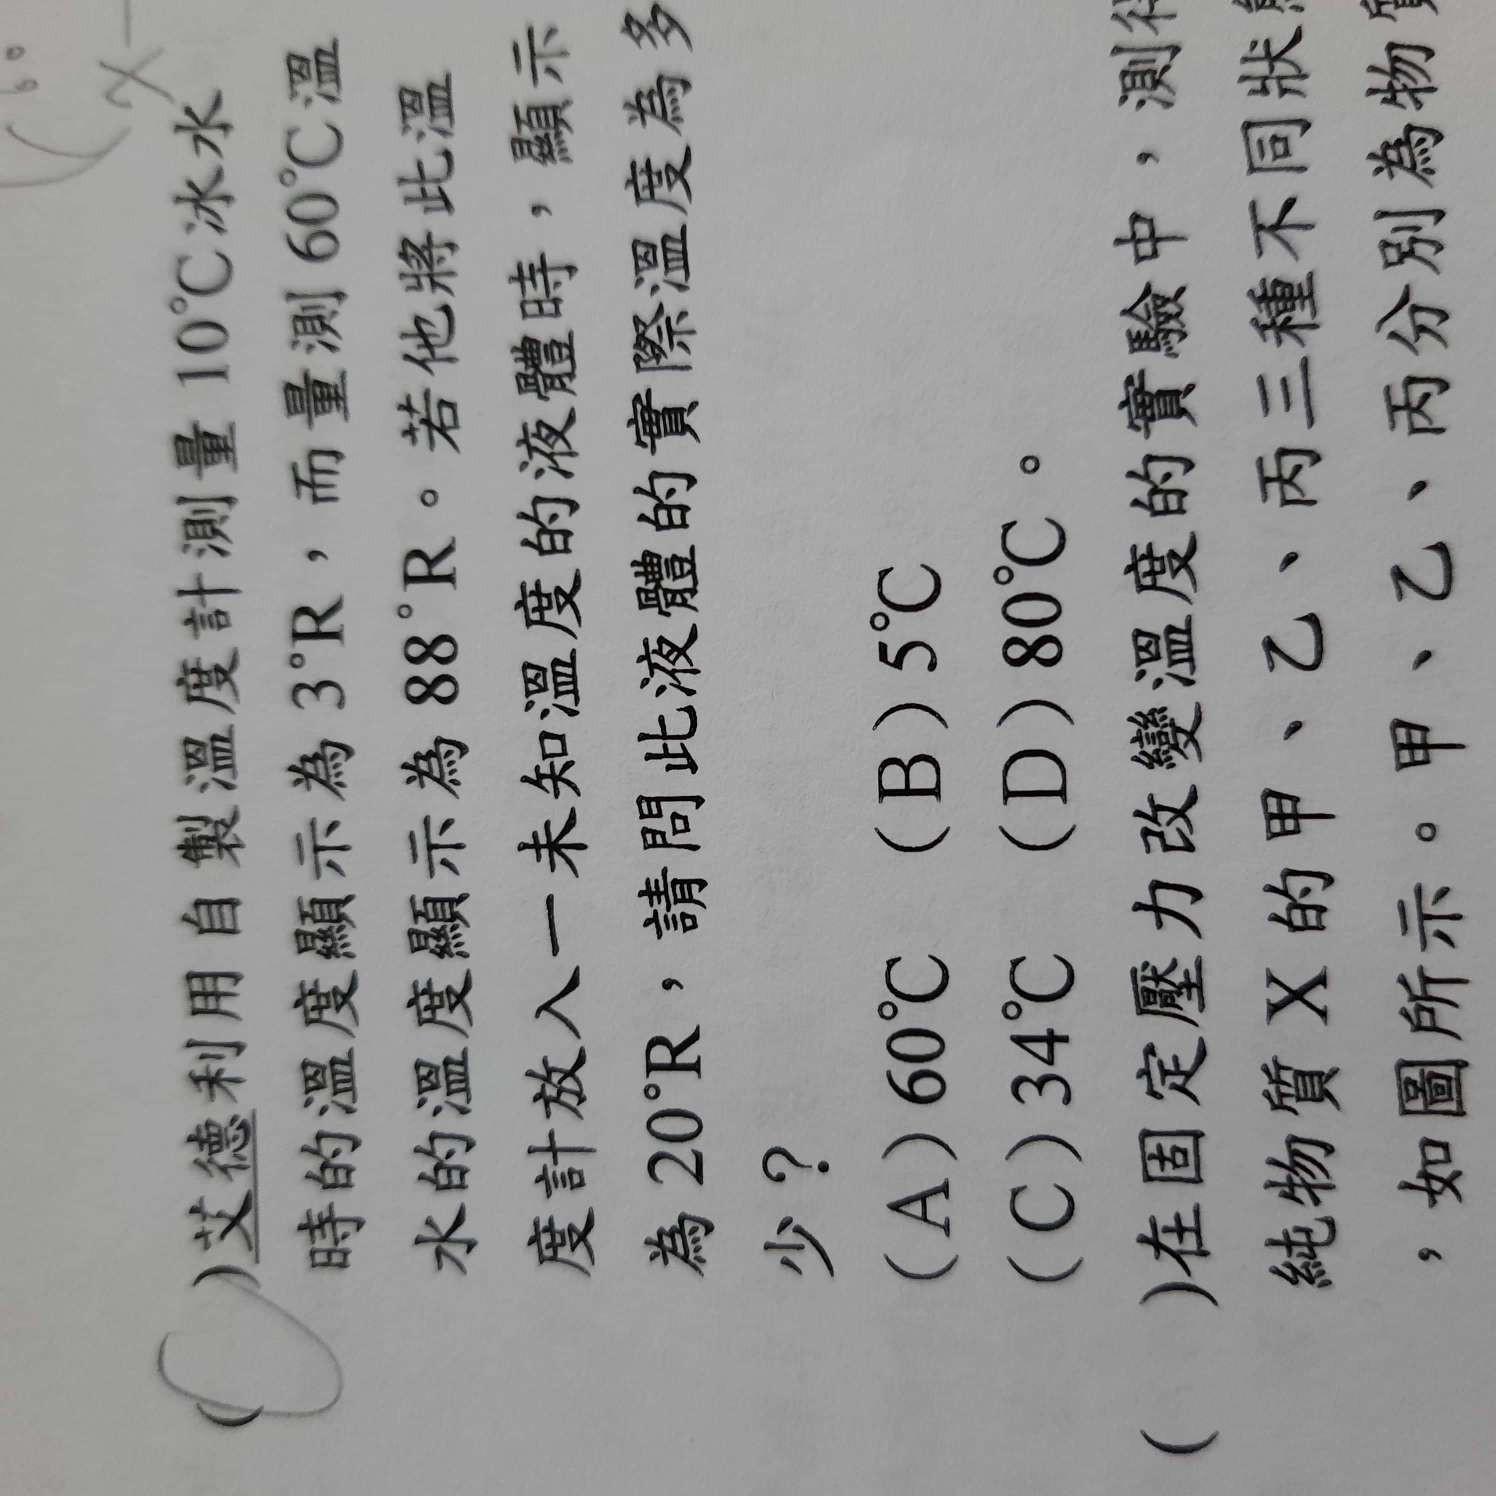 ( )艾德利用自製溫度計測量 10℃冰水
時的溫度顯示為 3°R，而量測 60℃溫
水的溫度顯示為 88°R。若他將此溫
度計放入一未知溫度的液體時，顯示
為 20°R，請問此液體的實際溫度為多
少？
(A) 60℃ (B) 5℃
(C) 34℃ (D) 80℃。
( )在固定壓力改變溫度的實驗中，測
純物質 X 的甲、乙、丙三種不同狀
，如圖所示。甲、乙、丙分別為物